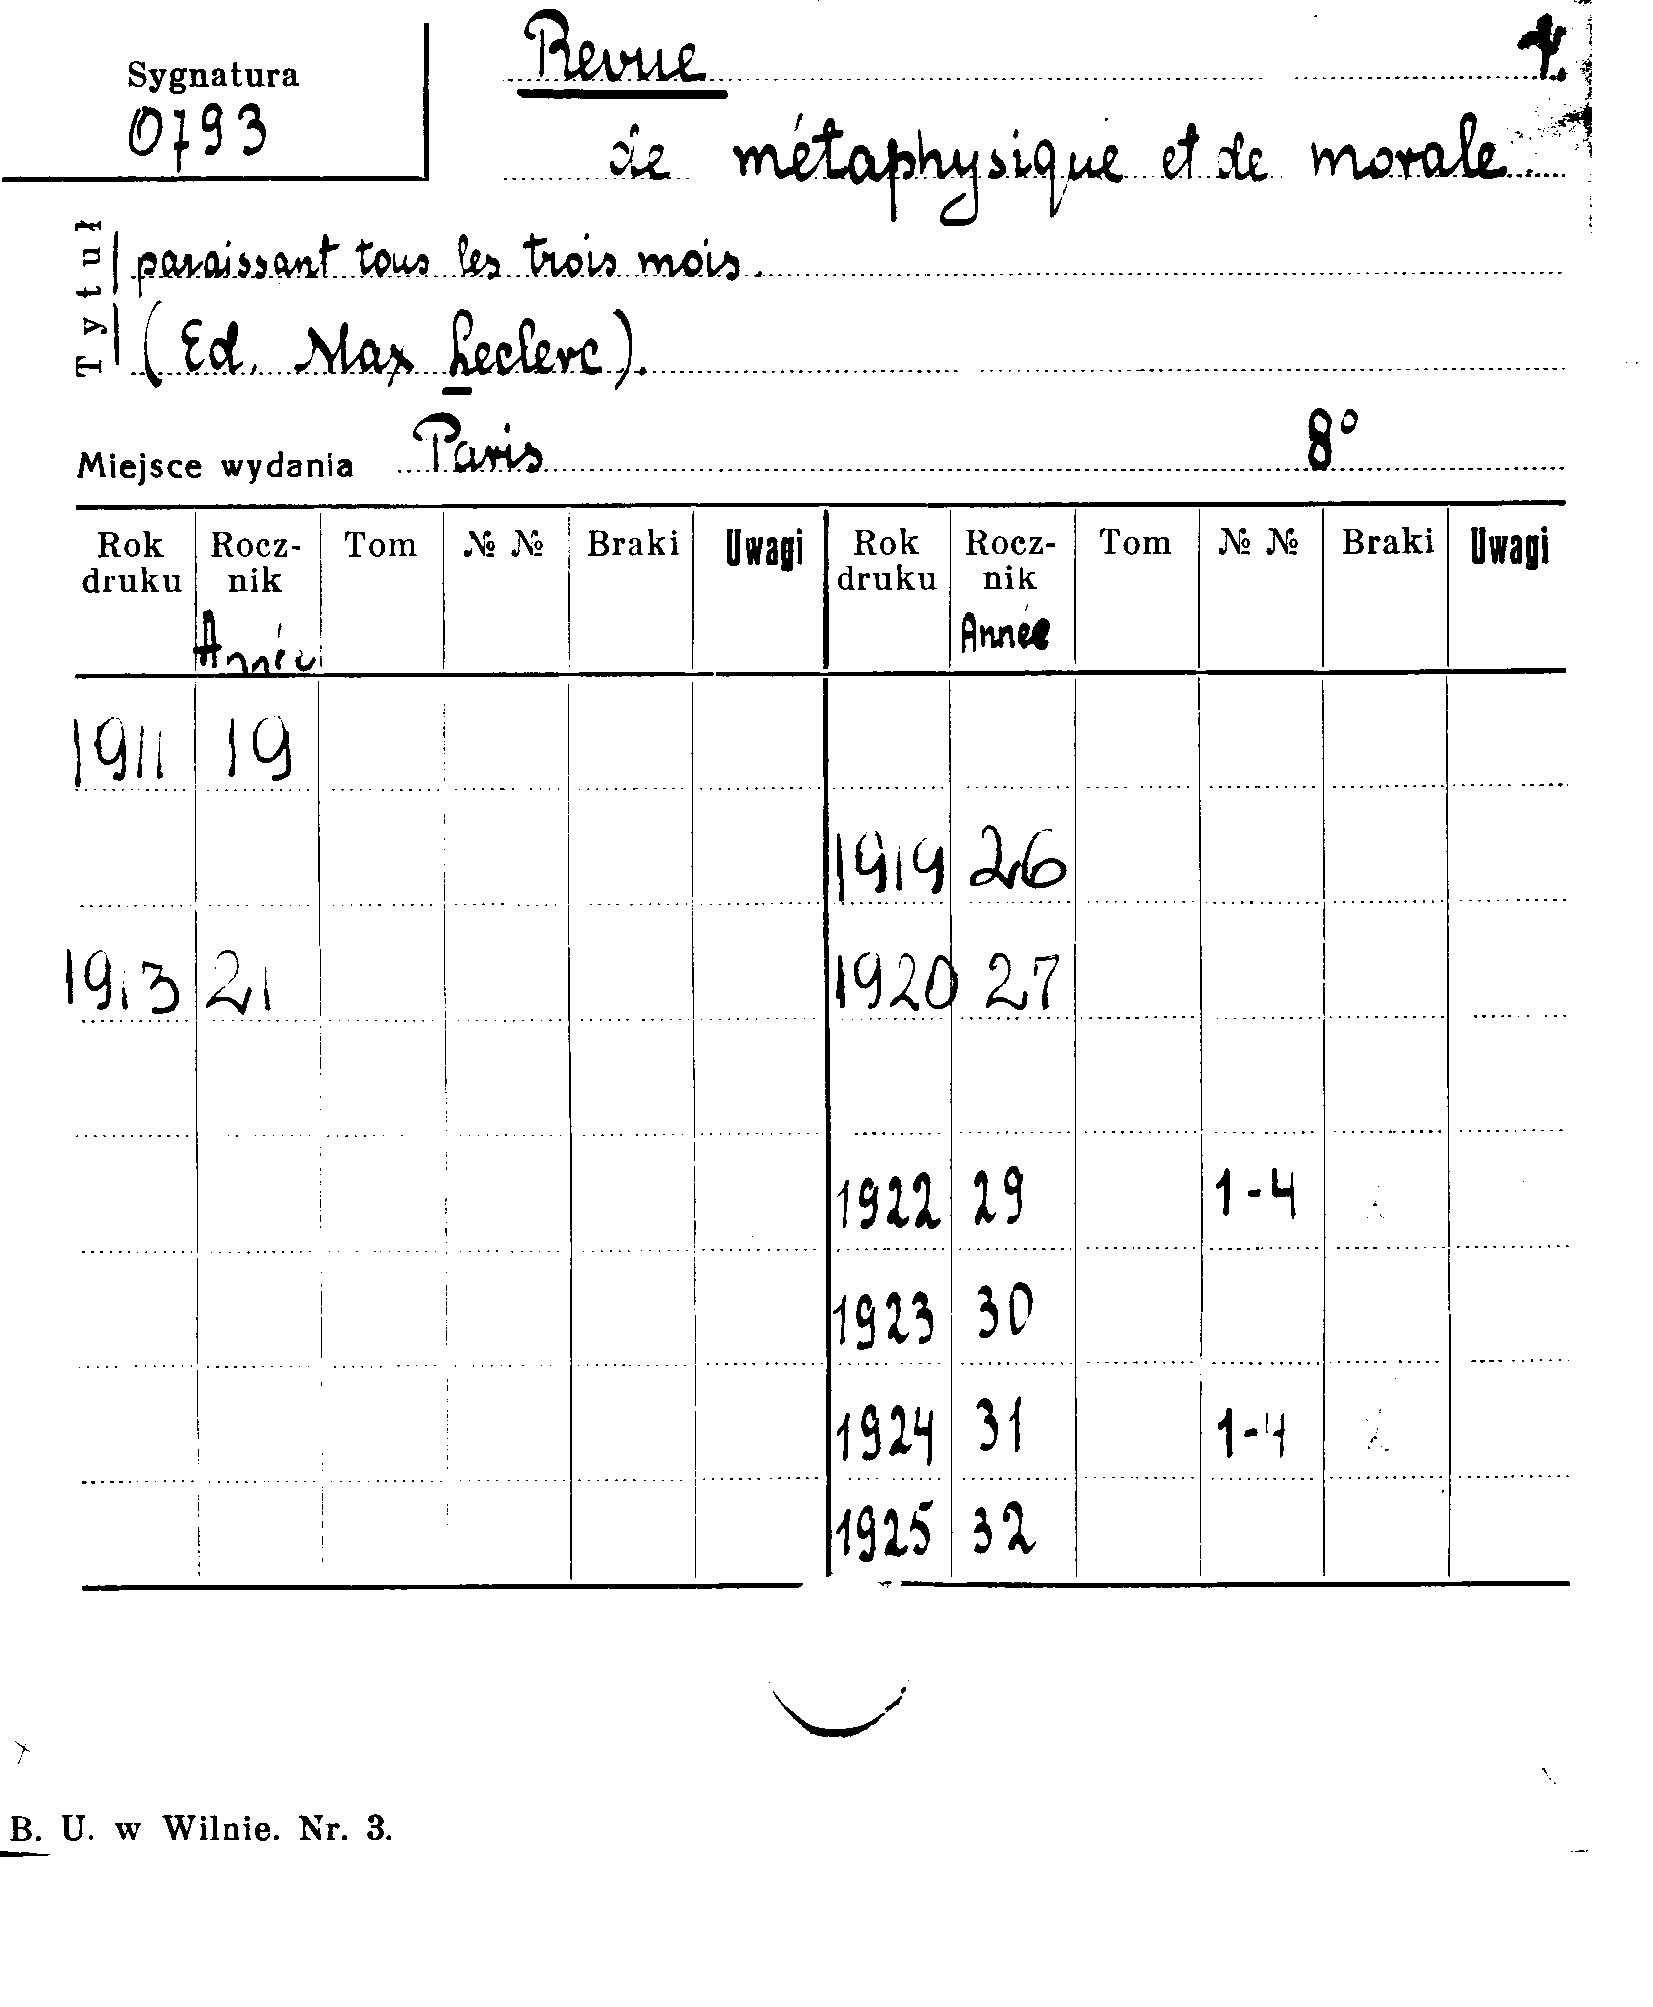 Sygnatura
0793
Revue
de métaphysique et de morale
Tytuł
paraissant tous les trois mois.
(Ed. Max Leclerc).
Miejsce wydania Paris 8°
Rok druku Rocz-nik Année Tom № № Braki Uwagi Rok druku Rocz-nik Année Tom № № Braki Uwagi
1911 19
1919 26
1913 21 1920 27
1922 29 1-4
1923 30
1924 31 1-4
1925 32
B. U. w Wilnie. Nr. 3.